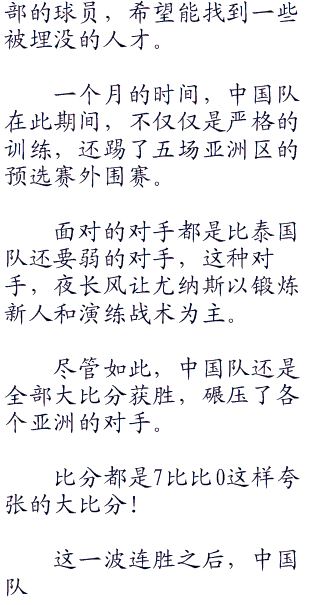 部的球员，希望能找到一些
被埋没的人才。
一个月的时间，中国队
在此期间，不仅仅是严格的
训练，还踢了五场亚洲区的
预选赛外围赛。
面对的对手都是比泰国
队还要弱的对手，这种对
手，夜长风让尤纳斯以锻炼
新人和演练战术为主。
尽管如此，中国队还是
全部大比分获胜，碾压了各
个亚洲的对手。
比分都是7比比0这样夸
张的大比分！
这一波连胜之后，中国
队